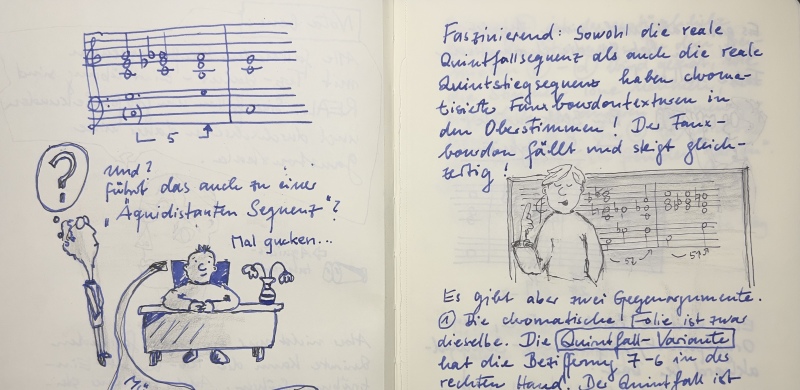 5
?
und?
führt das auch zu einer
„Äquidistanten Sequenz"?
Mal gucken...
Faszinierend: Sowohl die reale
Quintfallsequenz als auch die reale
Quintstiegsequenz haben chroma-
tisierte Fauxbourdontexturen in
den Oberstimmen! Der Faux-
bourdon fällt und steigt gleich-
zeitig!
Es gibt aber zwei Gegenargumente.
① Die chromatische Folie ist zwar
dieselbe. Die Quintfall-Variante
hat die Bezifferung 7-6 in der
rechten Hand. Der Quintfall ist